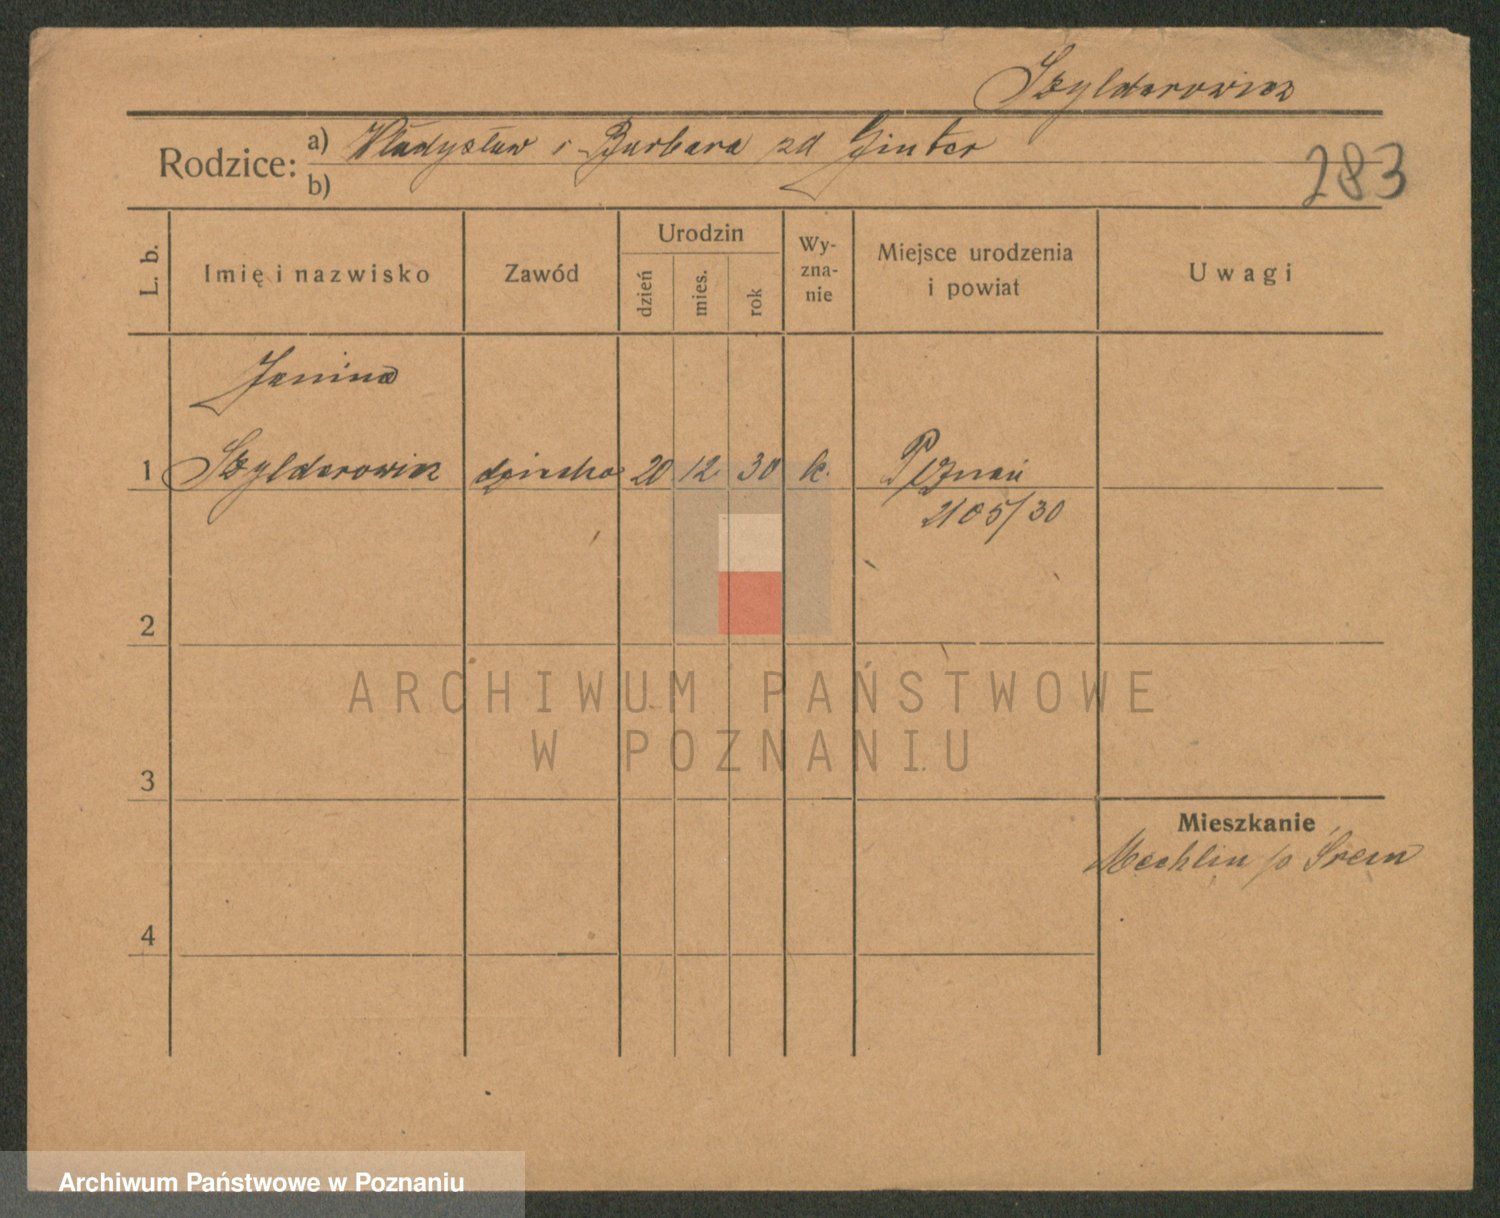 Szylderowicz
Rodzice: a) Władysław i Barbara zd Ginter
b)
283
L. b.
Imię i nazwisko
Zawód
Urodzin
dzień
mies.
rok
Wy-
zna-
nie
Miejsce urodzenia
i powiat
Uwagi
Janina
1 Szylderowicz dziecko 20 12 30 k. Poznań
2105/30
2
ARCHIWUM PAŃSTWOWE
W POZNANIU
3
Mieszkanie
Mechlin p Śrem
4
Archiwum Państwowe w Poznaniu